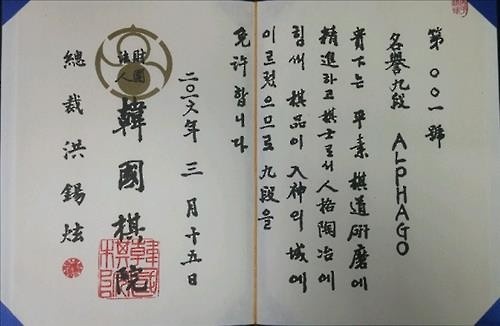 第〇〇一號
名譽九段 ALPHAGO
貴下는 平素 棋道研磨에
精進하고 棋士로서 人格陶冶에
힘써 棋品이 入神의 域에
이르렀으므로 九段을
免許합니다
二〇一六年 三月 十五日
財團
法人
韓國棋院
總裁 洪錫炫